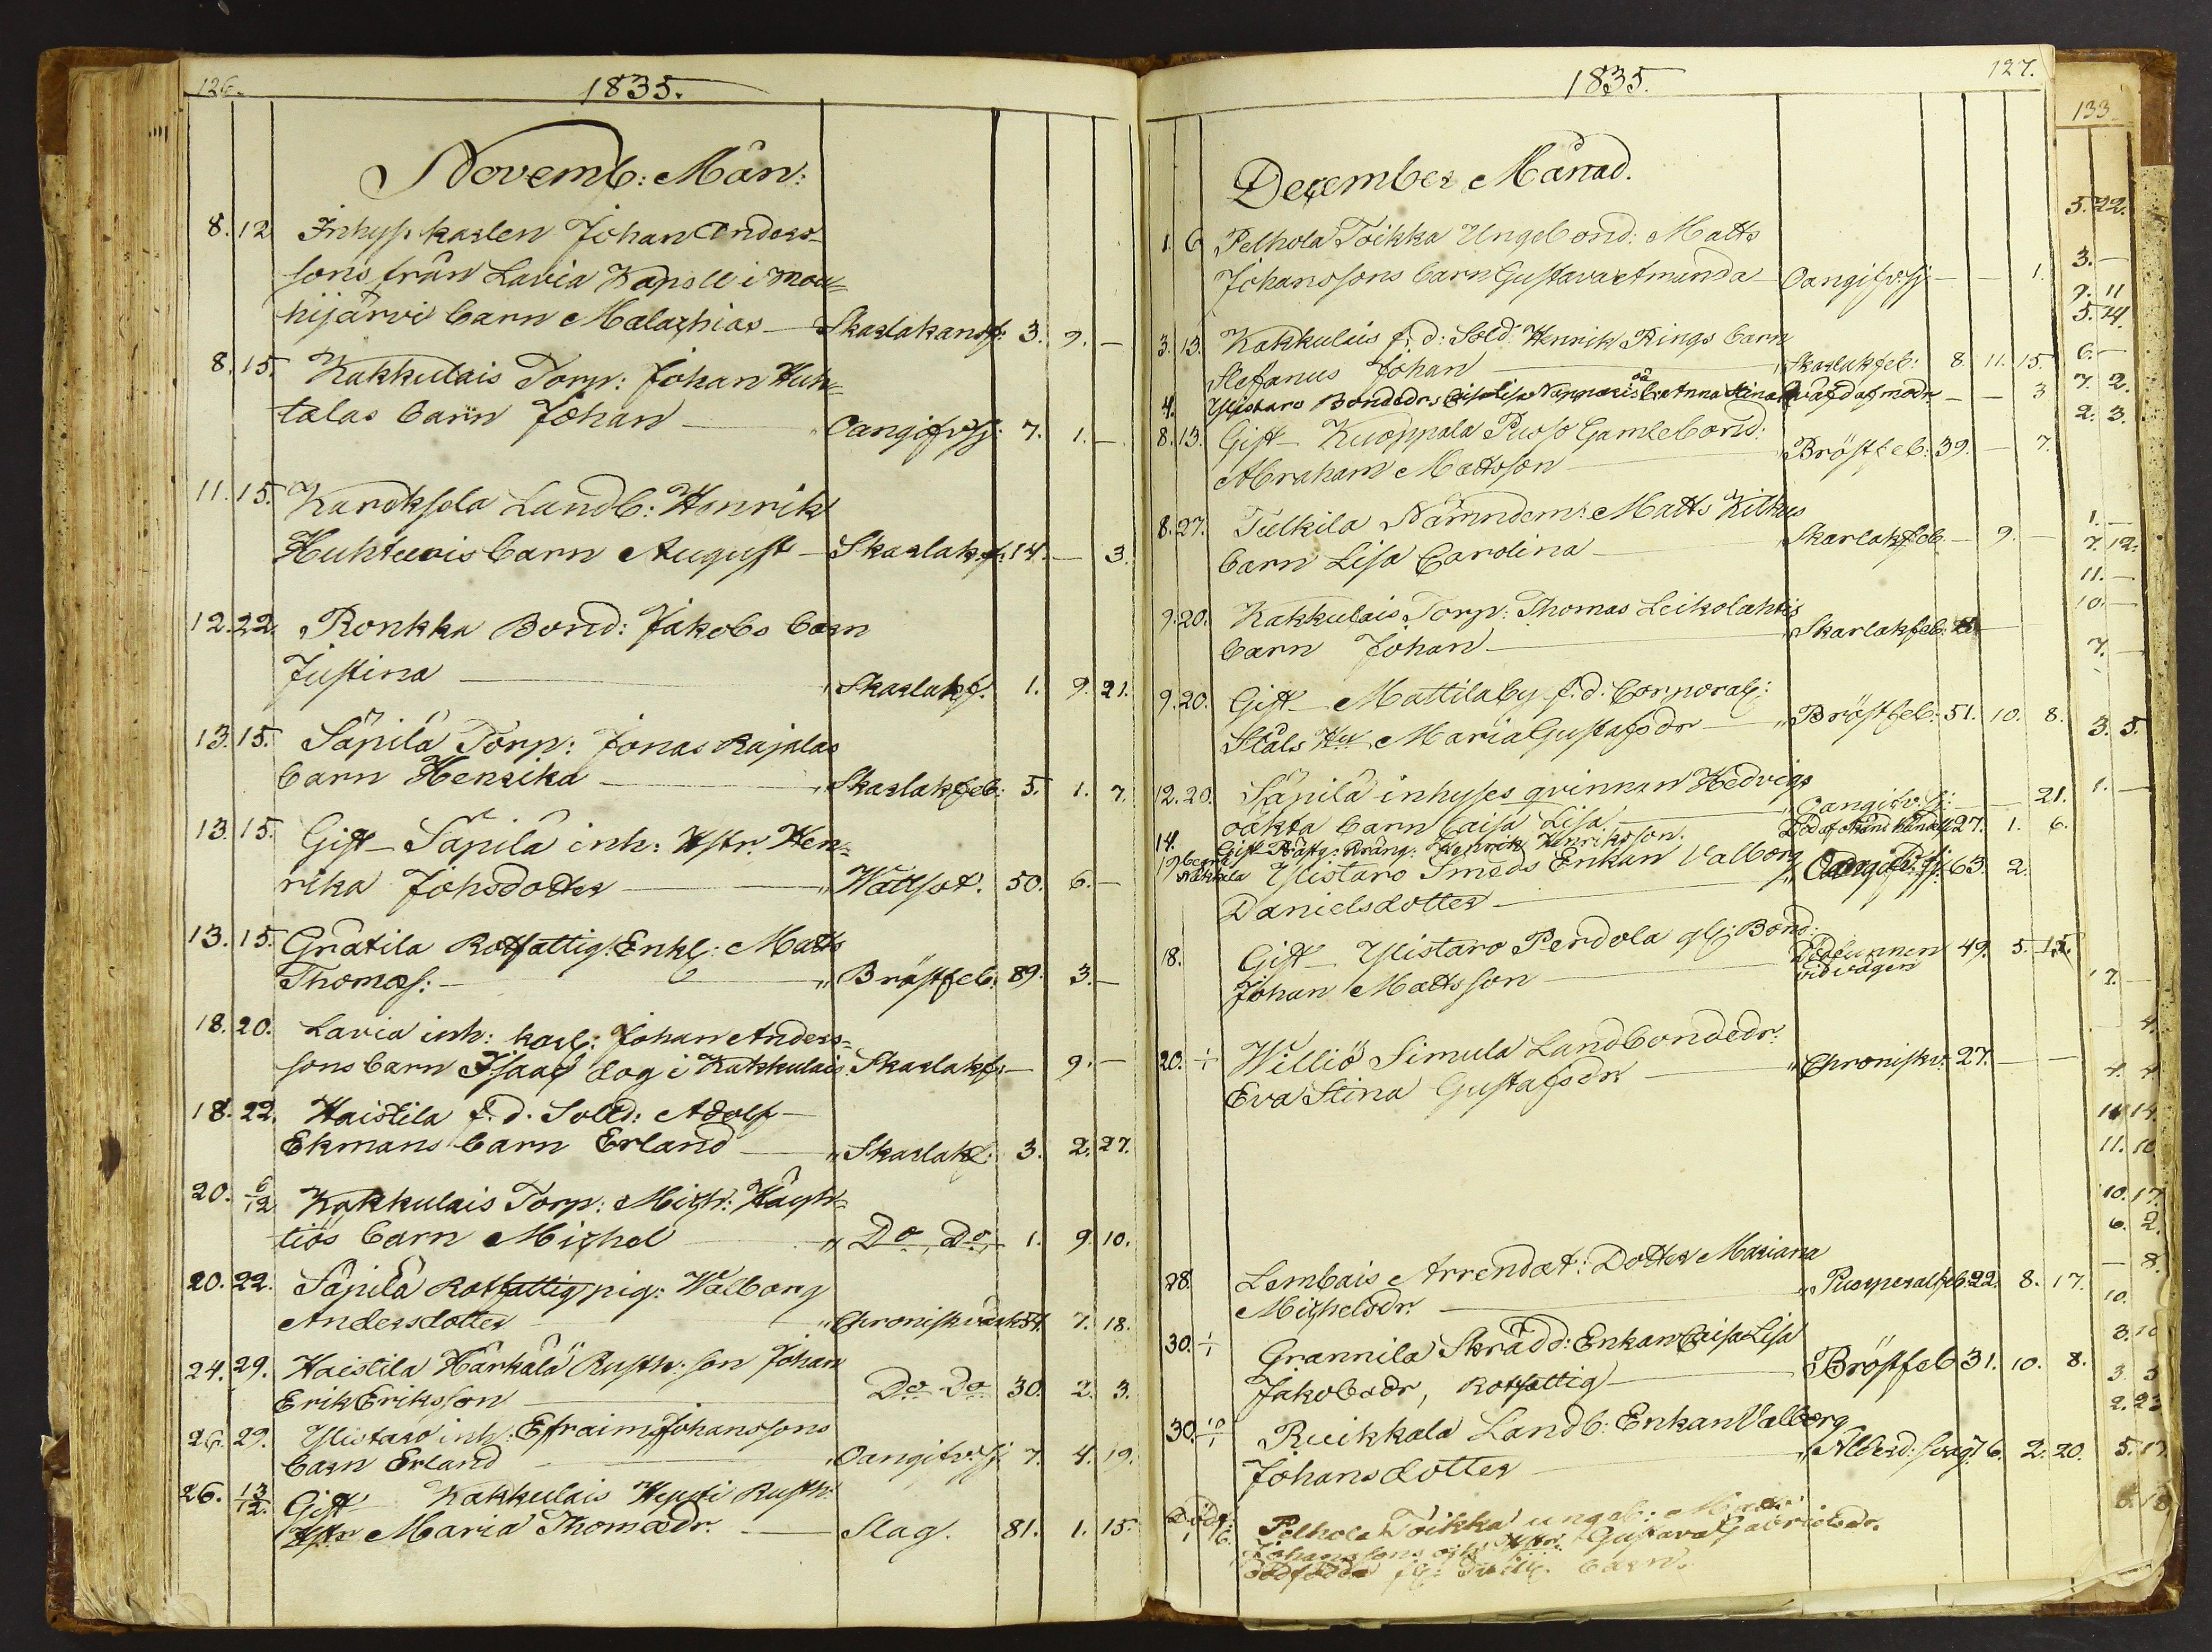 126.
1835.
Novemb: Mån:
8. 12 Inhys karlen Johan Anders-
sons från Lavia Kapell i Mou=
hijärvi barn Malachias — Skarlakansf: 3. 9. —
8. 15. Kakkulais Torp: Johan Huh=
talas barn Johan — Oangifv. sj: 7. 1. —
11. 15. Karoksela Landb: Henrik
Huhturis barn August — Skarlak.f. 14. — 3.
12. 22. Ronkka Bond: Jakobs barn
Justina — Skarlakf. 1. 9. 21.
13. 15. Säpilä Torp: Jonas Rajalas
barn Henrika — Skarlakfeb: 5. 1. 7.
13. 15. Gift Säpilä inh: Hstr. Hen=
rika Johsdotter — Wattsot. 50. 6. —
13. 15. Gratila Rotfattig: Enkl: Matts
Thomæs: — Bröstfeb. 89. 3. —
18. 20. Lavia inh: karl: Johan Anders=
sons barn Isaac dog i Kakkulais. Skarlakf. — 9. —
18. 22. Haistila f.d. Sold: Adolf
Ekmans barn Erland — Skarlakf: 3. 2. 27.
20. 6/12 Kakkulais Torp: Mich:
tiös barn Michel — Do, Do, 1. 9. 10.
20. 22. Säpilä Rotfattig pig: Walborg
Andersdotter — Chronisk värk 54. 7. 18.
24. 29. Haistila Härkälä Rusth: son Johan
Erik Eriksson — Do Do 30. 2. 3.
26. 29. Ylistaro inh: Efraim Johanssons
barn Erland — Oangifv. sj. 7. 4. 19.
26. 13/12. Gift Kakkulais Heusi Rusth:
Hstr Maria Thomædr. — Slag. 81. 1. 15.
1835.
127.
December Månad.
1. 6. Pelhola Toikka Ungebond: Matts
Johanssons barn Gustava Amanda — Oangifv. sj — — 1.
3. 13. Kakkulais f.d. Sold: Henrik Rings barn
Stefanus Johan — Skarlakfeb: 8. 11. 15.
4. Ylistaro Bondedr: Lisa oä b. Anna Stina qväfd af modr — — 3
8. 13. Gift Kuoppala Puosi Gamlebond:
Abraham Mattsson — Bröstfeb: 39. — 7.
8. 27. Tulkila Nämndem: Matts Kilkus
barn Lisa Carolina — Skarlakfeb. — 9. —
9. 20. Kakkulais Torp: Thomas Leikolahtis
barn Johan — Skarlakfeb:
9. 20. Gift Mattilaby f.d. Corporal:
Ståls Hu Maria Gustafsdr — Bröstfeb: 51. 10. 8.
12. 20. Säpilä inhyses qvinnan Hedvigs
oäkta barn Caisa Lisa — Oangifv. sj: — — 21.
14. Gift Präsg: dräng: Henrik Henriksson. Död af 27. 1. 6.
19 Ylistaro Smeds Enkan Valborg
Danielsdotter — Oangifv. sj. 63. 2.
18. Gift Ylistaro Perdola gl: Bond:
Johan Mattsson — Död funnen 49. 5. 12.
vid vägen
20. 1/1 Williö Simula Landbondedr:
Eva Stina Gustafsdr — Chronisk v. 27. — —
28. Lembais Arrendat: Dotter Mariana
Michelsdr. — Puerperalfeb 22. 8. 17.
30. 1/1 Grannila Skrädd: Enkan Caisa Lisa
Jakobsdr, Rotfattig — Bröstfeb 31. 10. 8.
30. 10/1 Ruikkala Landb: Enkan Valborg
Johansdotter — Ålderd: svag: 76. 2. 20.
Dödf:
1 6. Pelhola Toikka ungeb: Matts
Johanssons och Hstr. Gustava Gabrielsdr.
dödfödda barn.
133
5. 22.
3. —
9. 11
5. 24.
6. —
7. 2.
2. 3.
1. —
7. 12.
11. —
10. —
7. —
3. 5.
1. —
7. —
4.
11. 10
10. 17.
6. 2.
— 8.
10.
3. 10
3. 3
2. 23
5. 17